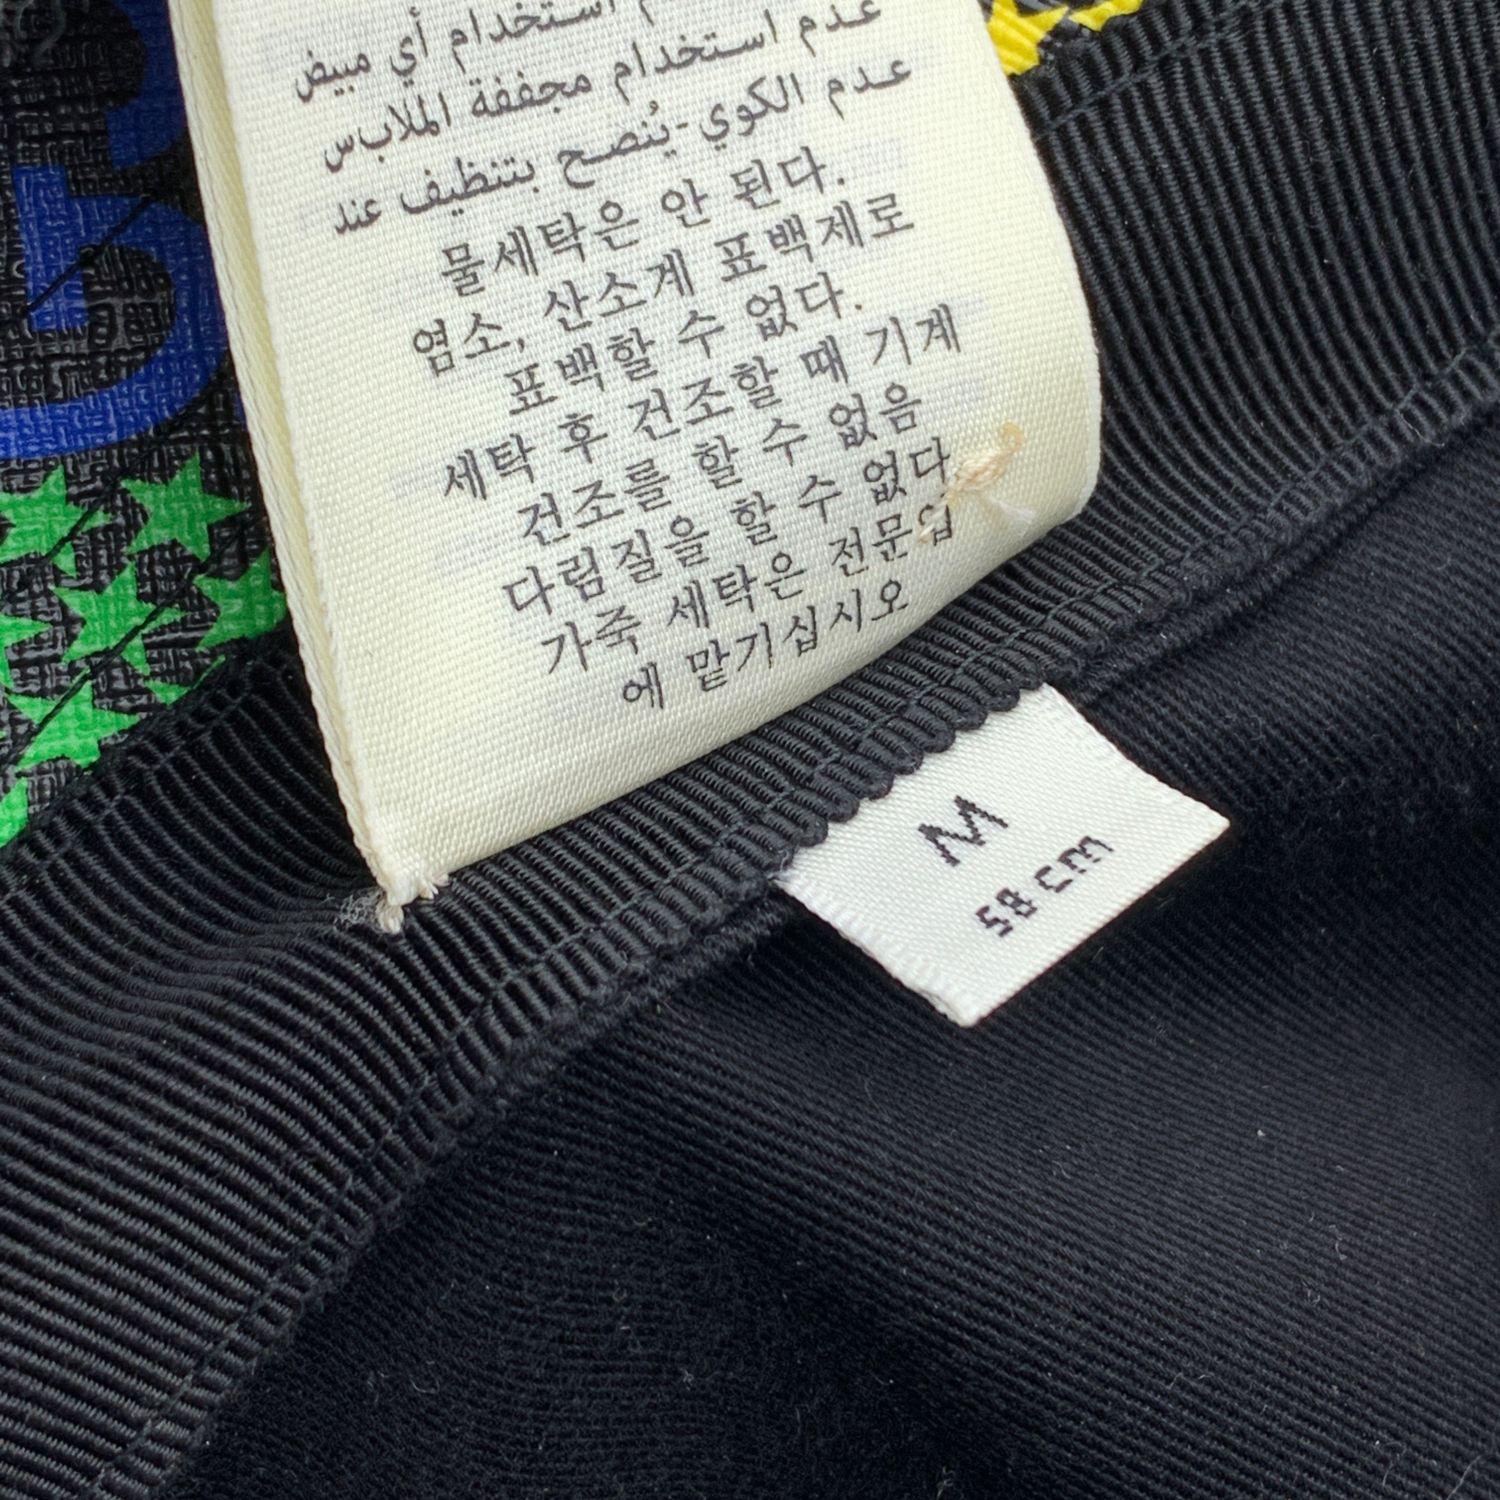 استخدام أي مبيض
عدم استخدام مجففة الملابس
عدم الكوي-يُنصح بتنظيف عند
물세탁은 안 된다.
염소, 산소계 표백제로
표백할 수 없다.
세탁 후 건조할 때 기계
건조를 할 수 없음
다림질을 할 수 없다
가죽 세탁은 전문업
에 맡기십시오
M
58 cm